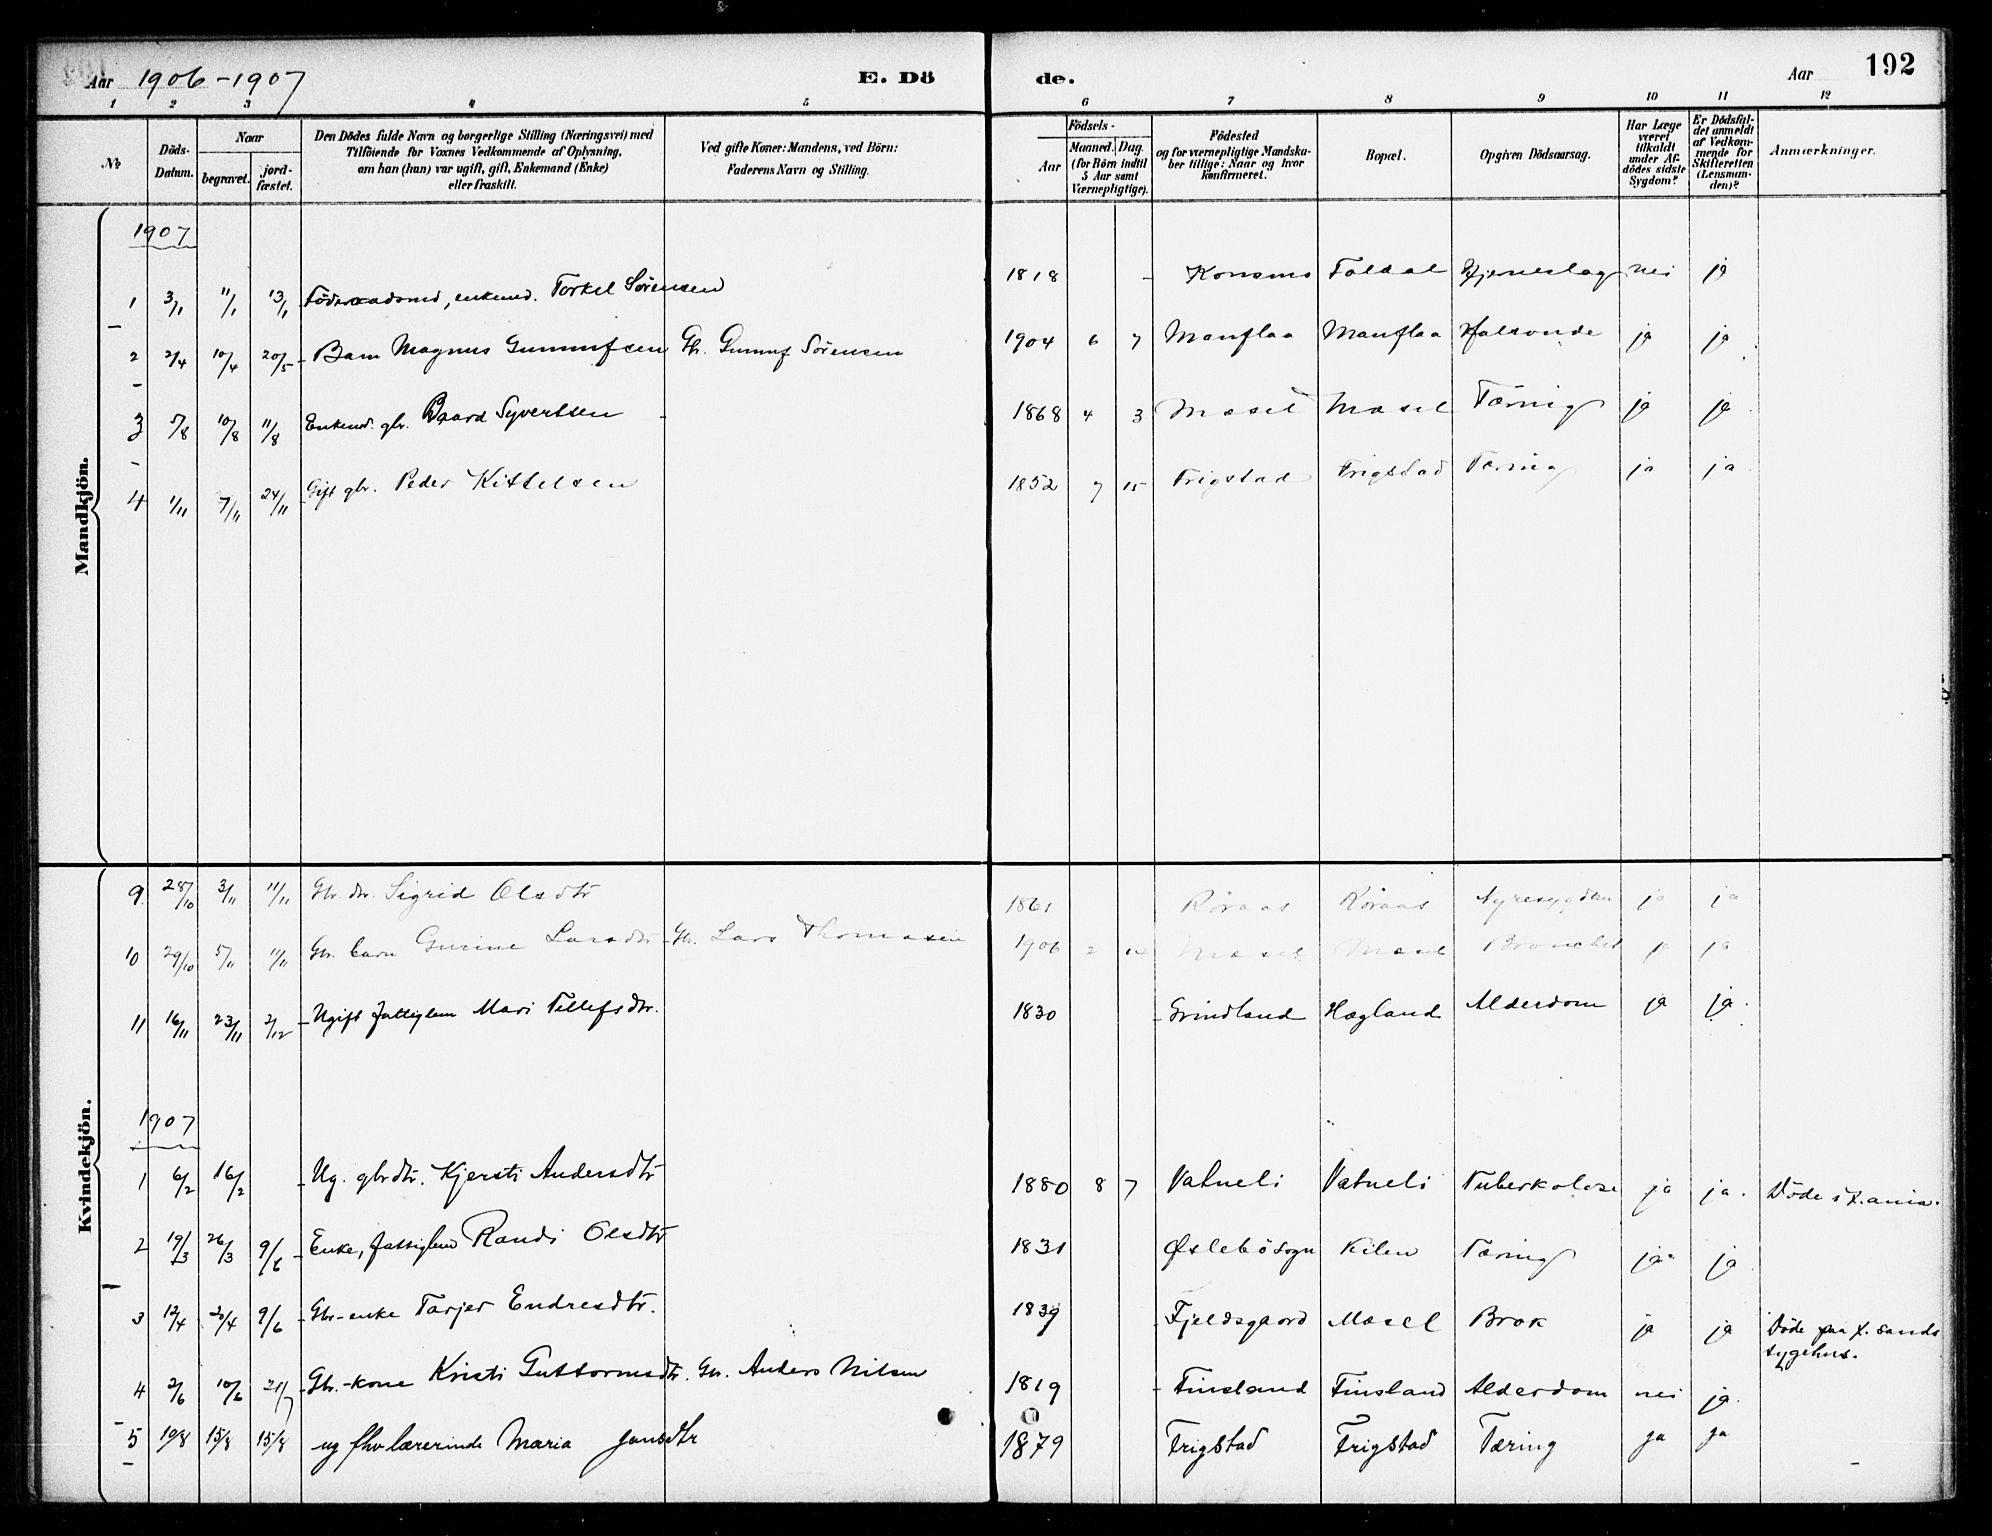 Aar 1906-1907 E. Dö de. Aar 192
1 2 3 4 5 6 7 8 9 10 11 12
No
Döds-Datum.
Naar
begravet.
jord-fæstet.
Den Dödes fulde Navn og borgerlige Stilling (Næringsvei) med
Tilföiende for Voxnes Vedkommende af Oplysning,
om han (hun) var ugift, gift, Enkemand (Enke)
eller fraskilt.
Ved gifte Koner: Mandens, ved Börn:
Faderens Navn og Stilling.
Födsels-
Aar
Maaned. Dag.
(for Börn indtil
5 Aar samt
Værnepligtige).
Födested
og for værnepligtige Mandska-
ber tillige: Naar og hvor
konfirmeret.
Bopæl.
Opgiven Dödsaarsag.
Har Læge
været
tilkaldt
under Af-
dödes sidste
Sygdom?
Er Dödsfal-
det anmeldt
af Vedkom-
mende for
Skifteretten
(Lensman-
den)?
Anmærkninger.
Mandkjön.
1907
1 3/1 11/1 13/1 Föderaadsmd, enkemd. Torkel Sörensen 1818 - Konsmo Foldal Hjerneslag nei ja
2 2/4 10/4 20/5 Barn Magnus Gunnufsen Gbr. Gunnuf Sörensen 1904 6 7 Manflaa Manflaa Halsonde ja ja
3 5/8 10/8 11/8 Enkemd. gbr. Baard Syvertsen - 1868 4 3 Mæsel Mæsel Tæring ja ja
4 1/11 7/11 24/11 Gift gbr. Peder Kittelsen 1852 7 15 Frigstad Frigstad Tæring ja ja
Kvindekjön.
9 28/10 3/11 11/11 Gbr. dtr. Sigrid Olsdtr 1861 Röraas Röraas Nyresygdom ja ja
10 29/10 5/11 11/11 Gbr. barn Gurine Larsdtr Gbr. Lars Thomasen 1906 2 14 Mæsel Mæsel Bronchit ja ja
11 16/11 23/11 2/12 Ugift fattiglem Mari Tellefsdtr. 1830 Grindland Hægland Alderdom ja ja
1907
1 6/2 16/2 Ug. gbrdtr. Kjersti Andersdtr 1880 8 7 Vatneli Vatneli Tuberkolose ja ja. Döde i X.ania.
2 19/3 26/3 9/6 Enke, fattiglem Randi Olsdtr 1831 Öslebö sogn Kilen Tæring ja ja
3 12/4 20/4 9/6 Gbr-enke Tarjer Endresdtr. 1839 Fjeldsgaard Mæsel Brok ja ja Döde paa X.sands
sygehus.
4 2/6 10/6 21/7 Gbr.-kone Kristi Guttormsdtr. Gbr. Anders Nilsen 1819 Finsland Finsland Alderdom nei ja.
5 10/8 15/8 15/8 ug fhv lærerinde Maria Jansdtr 1879 Frigstad Frigstad Tæring ja ja